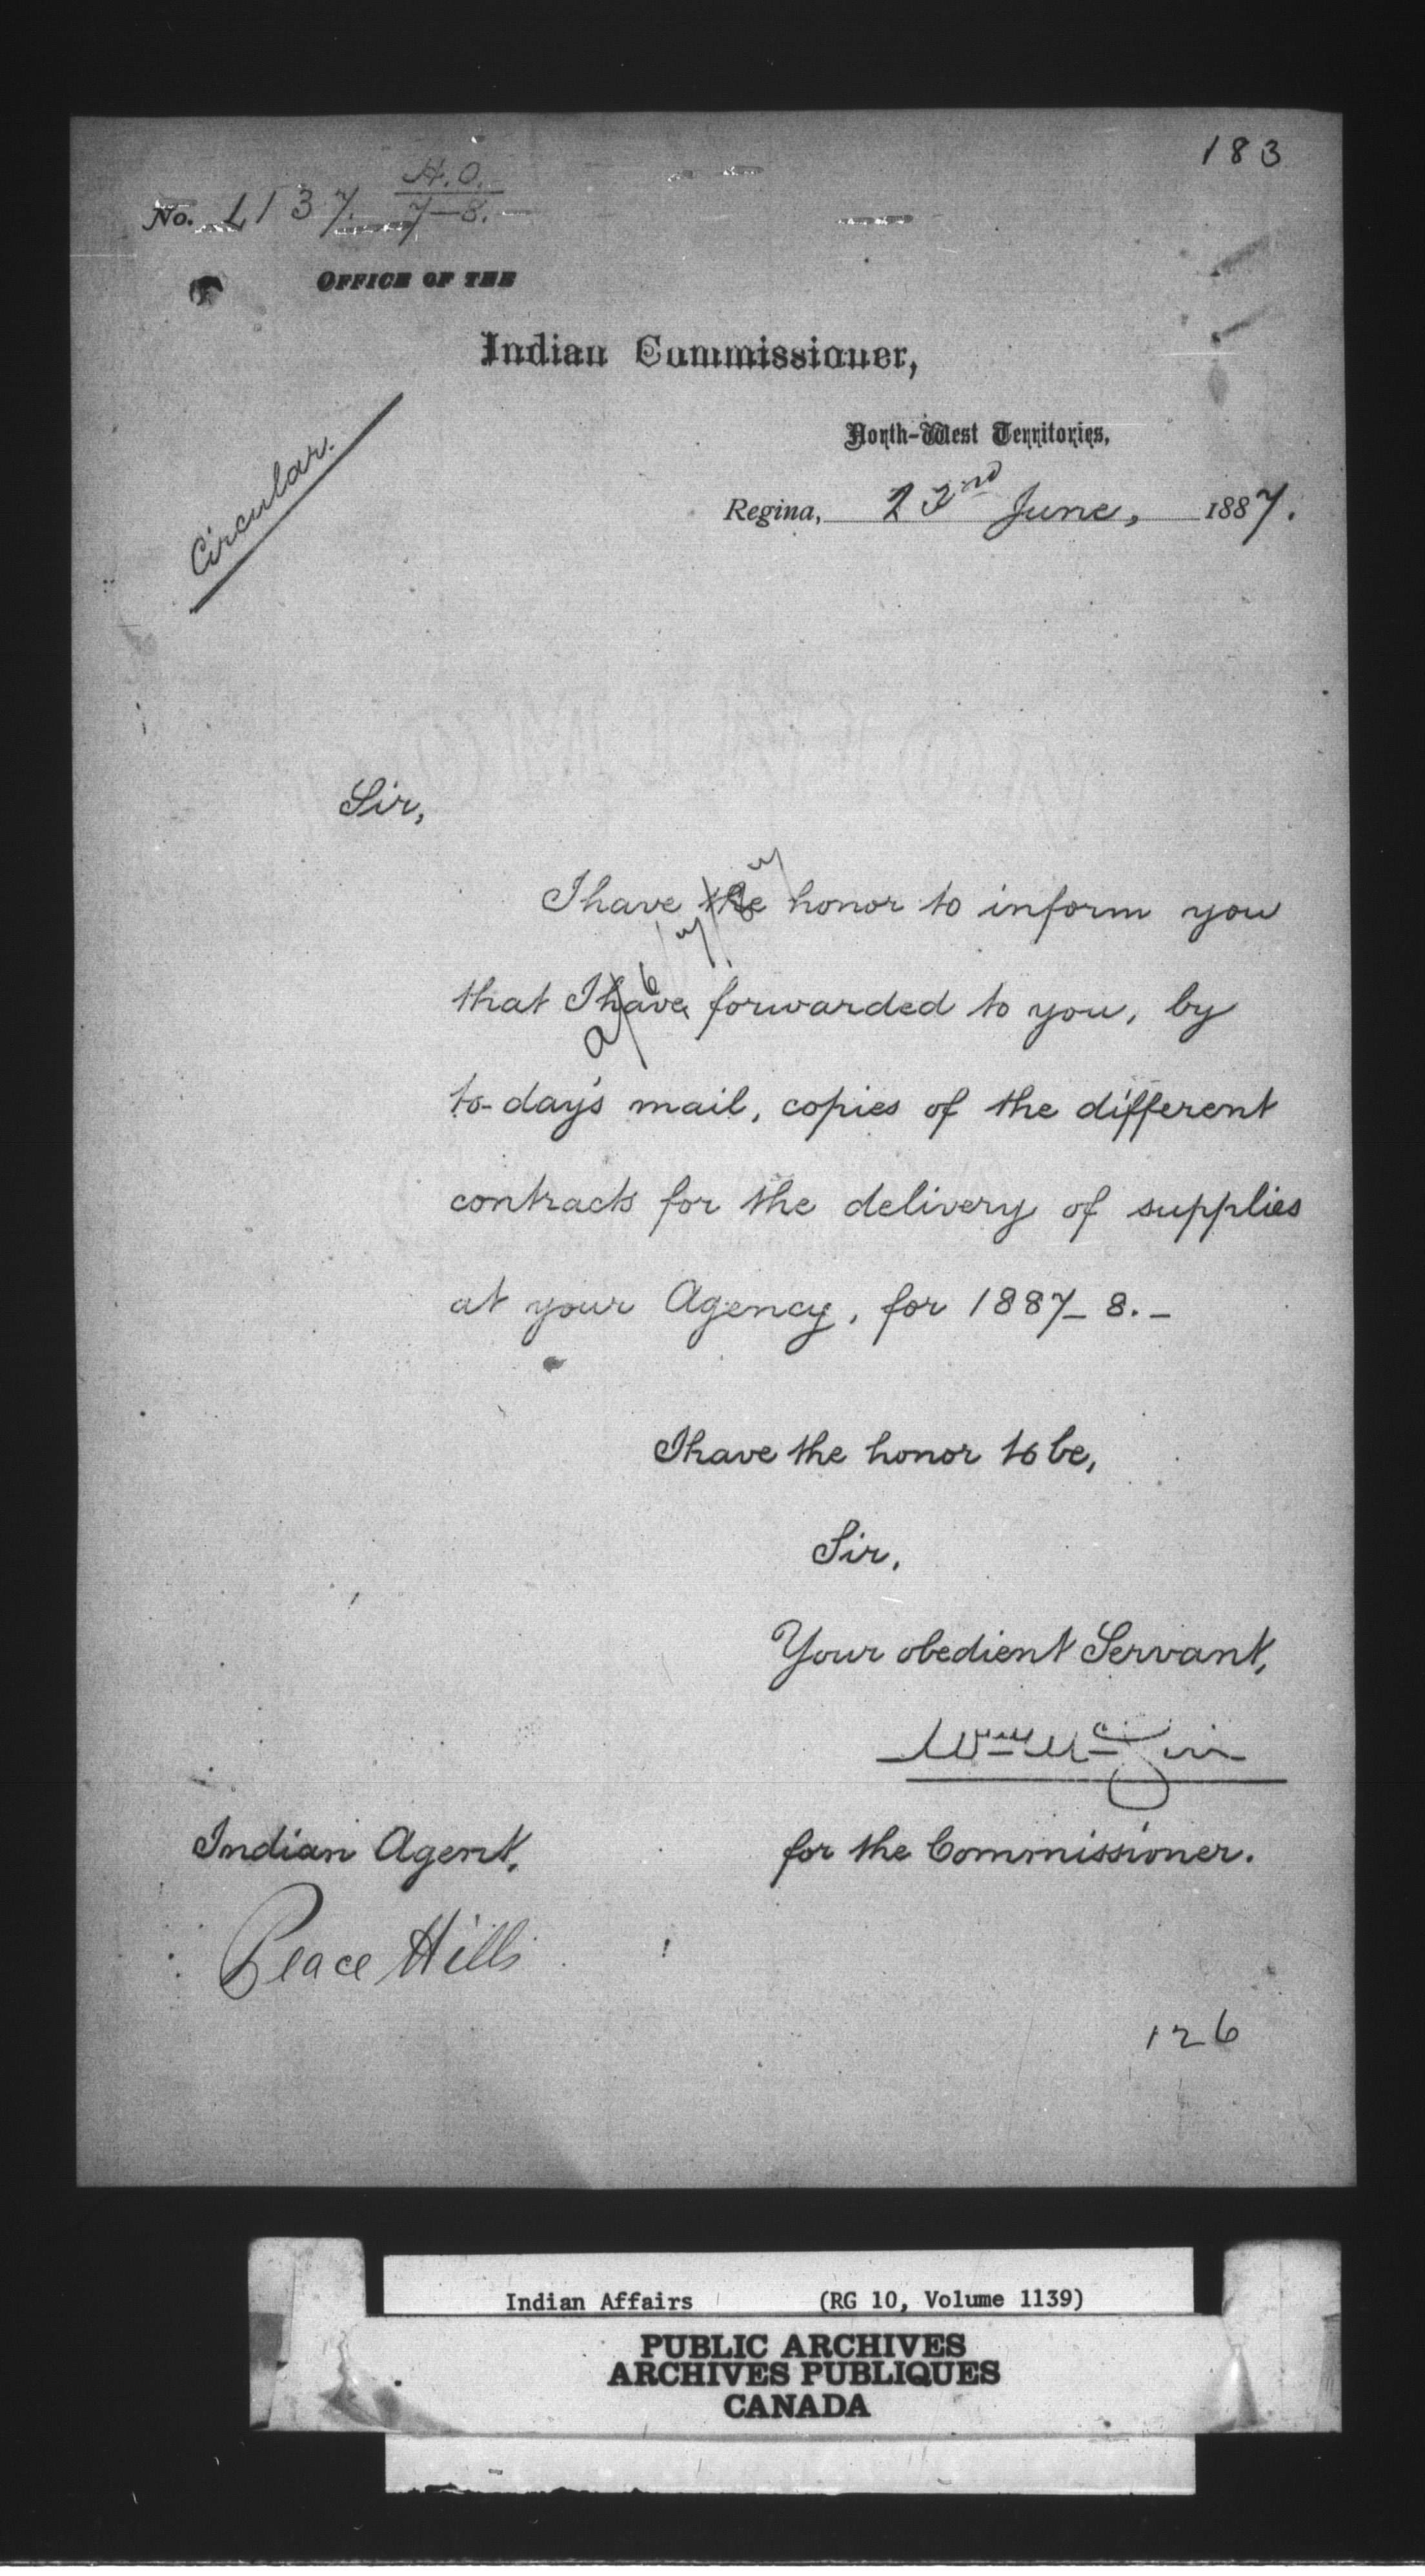 183
No. L137. H.O. 7-8.
OFFICE OF THE
Indian Commissioner,
North-West Territories,
Regina, 22nd June, 1887.
Circular.
Sir,
I have the honor to inform you
that I have forwarded to you, by
to-day's mail, copies of the different
contracts for the delivery of supplies
at your Agency, for 1887-8.-
I have the honor to be,
Sir,
Your obedient Servant,
for the Commissioner.
Indian Agent,
Peace Hills
126
Indian Affairs (RG 10, Volume 1139)
PUBLIC ARCHIVES
ARCHIVES PUBLIQUES
CANADA